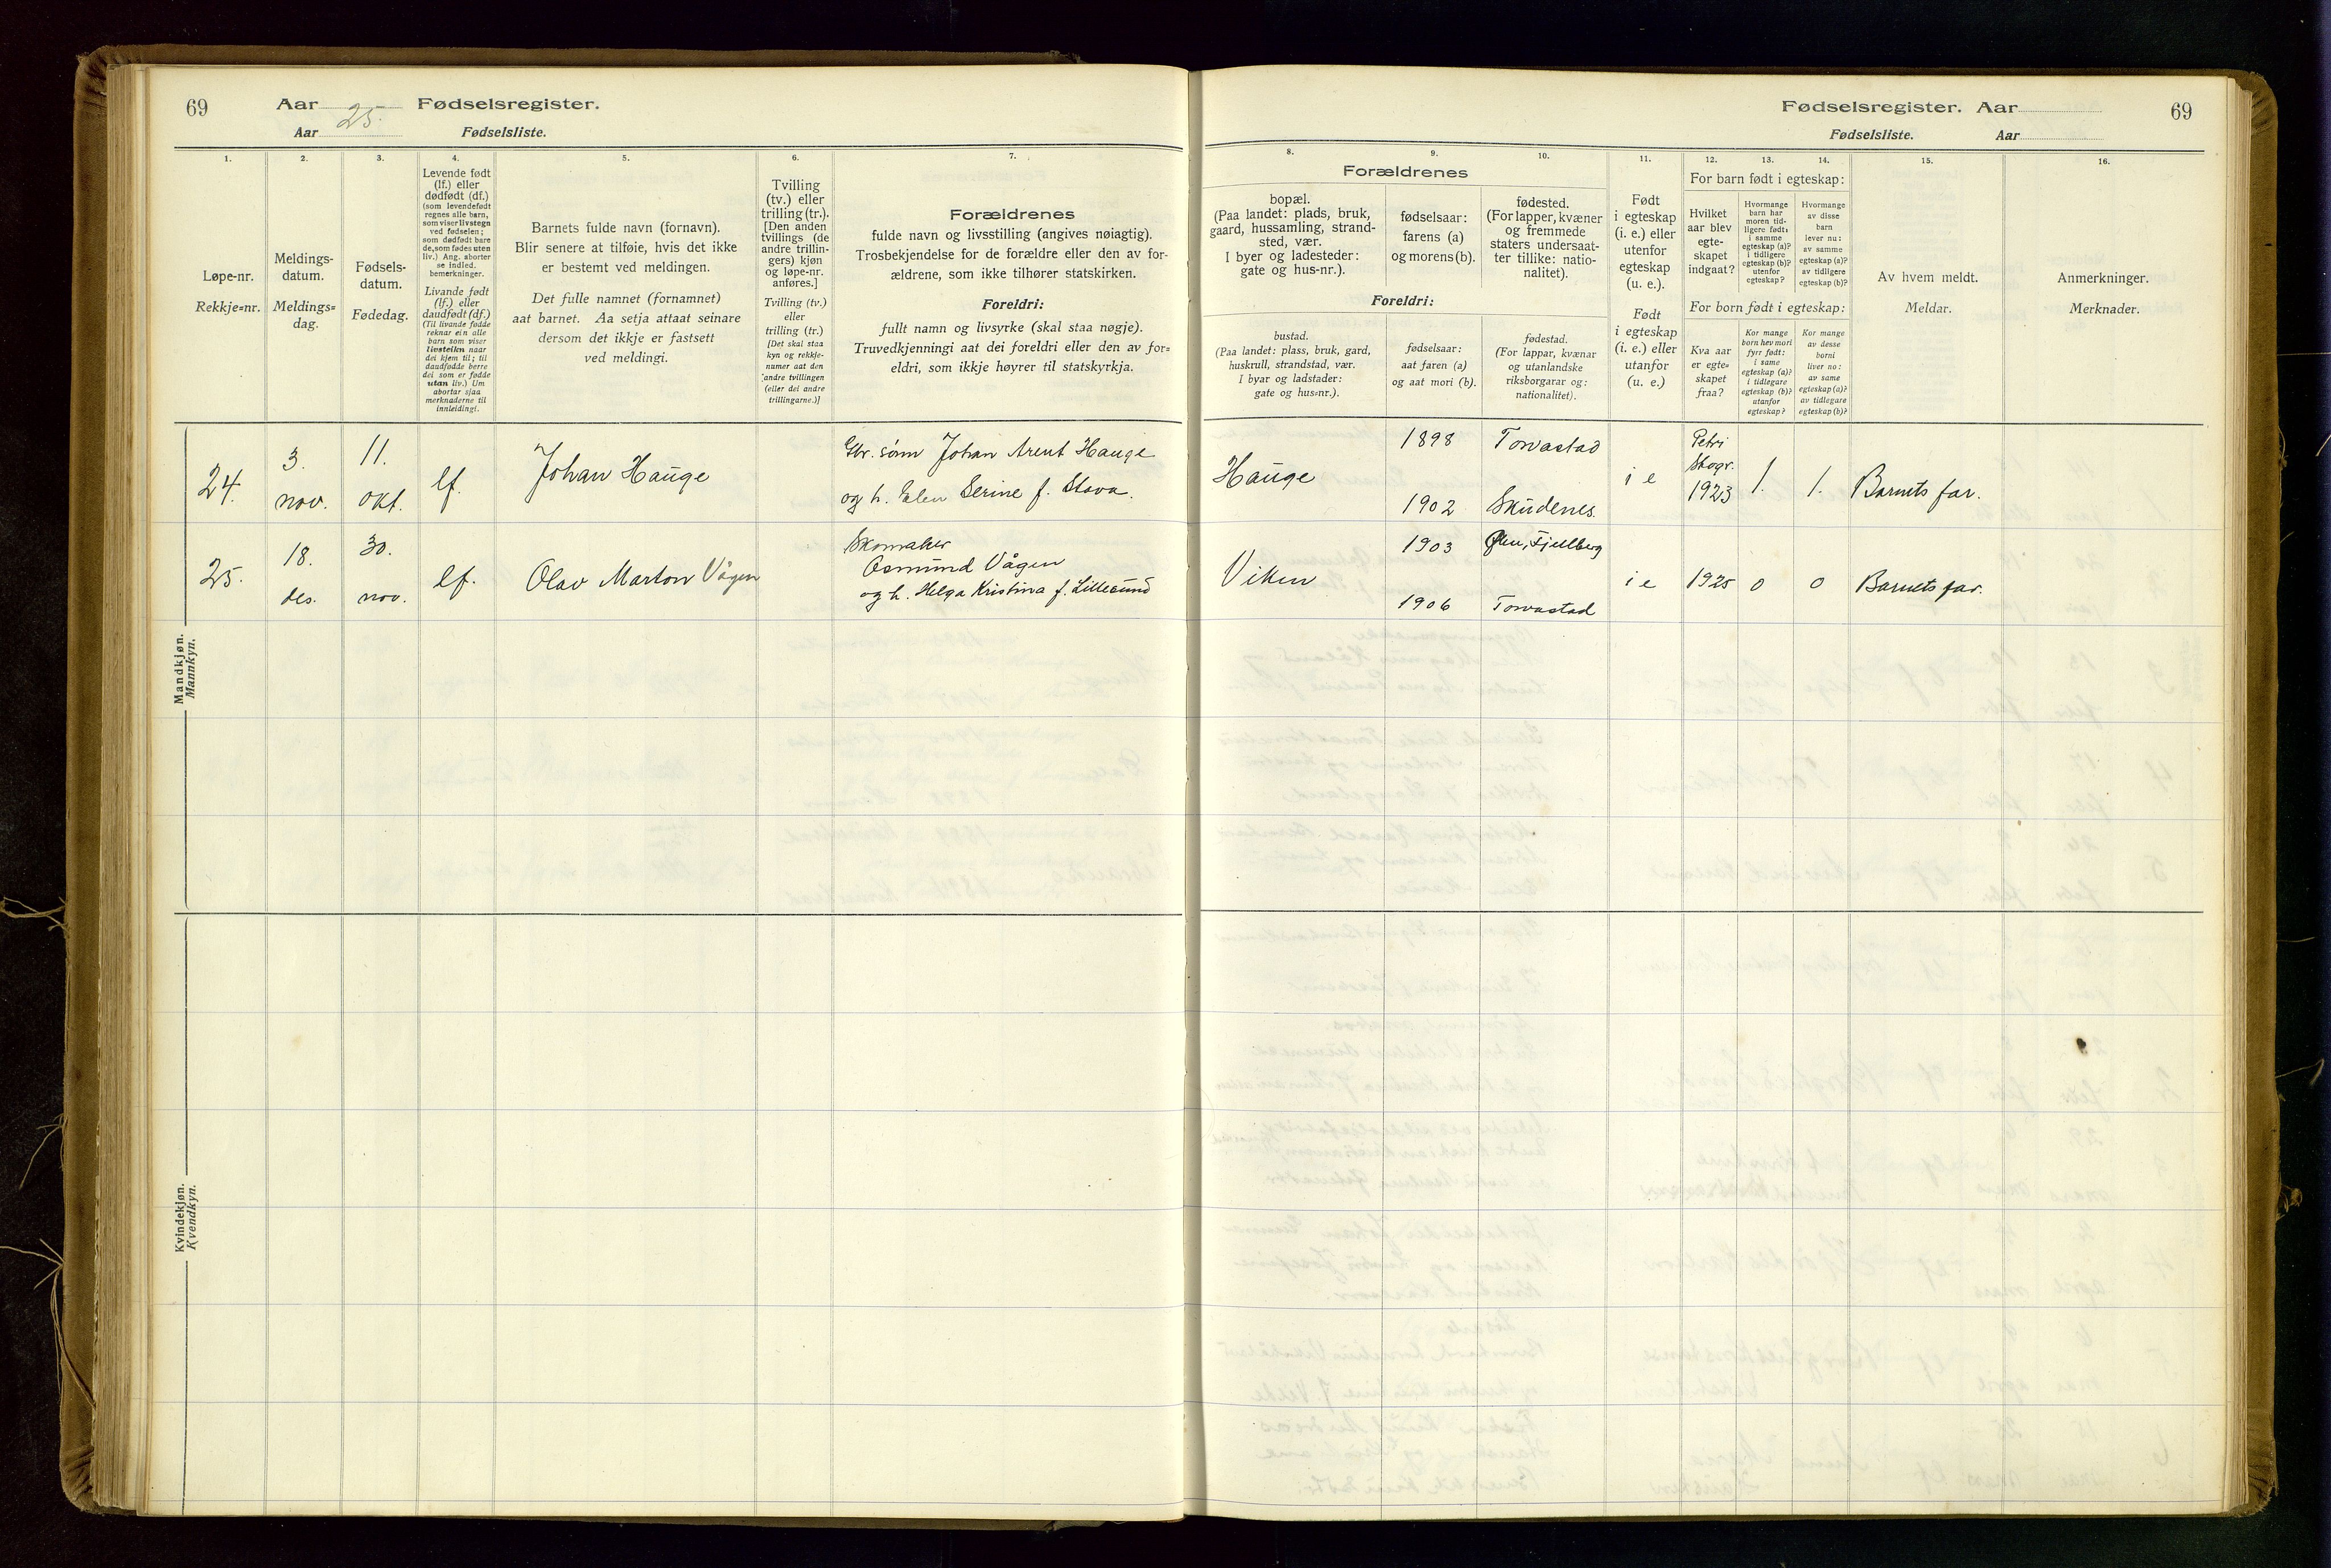 69
Aar 25. Fødselsregister.
Aar Fødselsliste.
1.
2.
3.
4.
5.
6.
7.
Løpe-nr.
Rekkje=nr.
Meldings-
datum.
Meldings=
dag.
Fødsels-
datum.
Fødedag.
Levende født
(lf.) eller
dødfødt (df.)
(som levendefødt
regnes alle barn,
som viser livstegn
ved fødselen;
som dødfødt bare
de, som fødes uten
liv.) Ang. aborter
se indled.
bemerkninger.
Livande født
(lf.) eller
daudfødt (df.)
(Til livande fødde
reknar ein alle
barn som viser
livsteikn naar
dei kjem til; til
daudfødde berre
dei som er fødde
utan liv.) Um
abortar sjaa
merknaderne til
innleidingi.
Barnets fulde navn (fornavn).
Blir senere at tilføie, hvis det ikke
er bestemt ved meldingen.
Det fulle namnet (fornamnet)
aat barnet. Aa setja attaat seinare
dersom det ikkje er fastsett
ved meldingi.
Tvilling
(tv.) eller
trilling (tr.).
[Den anden
tvillings (de
andre trillin-
gers) kjøn
og løpe-nr.
anføres.]
Tvilling (tv.)
eller
trilling (tr.)
[Det skal staa
kyn og rekkje-
numer aat den
andre tvillingen
(eller dei andre
trillingarne.)]
Forældrenes
fulde navn og livsstilling (angives nøiagtig).
Trosbekjendelse for de forældre eller den av for-
ældrene, som ikke tilhører statskirken.
Foreldri:
fullt namn og livsyrke (skal staa nøgje).
Truvedkjenningi aat dei foreldri eller den av for=
eldri, som ikkje høyrer til statskyrkja.
24.
3.
nov.
11.
okt.
lf.
Johan Hauge
Gbr. søm Johan Arent Hauge
og h. Elen Serine f. Stava.
25.
18.
des.
30.
nov.
lf.
Olav Marton Vågen
Skomaker
Osmund Vågen
og h. Helga Kristina f. Lillesund
Mandkjøn.
Mannkyn.
Kvindekjøn.
Kvendkyn.
Fødselsregister. Aar
69
Fødselsliste. Aar
8.
9.
10.
11.
12.
13.
14.
15.
16.
Forældrenes
bopæl.
(Paa landet: plads, bruk,
gaard, hussamling, strand-
sted, vær.
I byer og ladesteder:
gate og hus-nr.).
fødselsaar:
farens (a)
og morens (b).
fødested.
(For lapper, kvæner
og fremmede
staters undersaat-
ter tillike: natio-
nalitet).
Foreldri:
bustad.
(Paa landet: plass, bruk, gard,
huskrull, strandstad, vær.
I byar og ladstader:
gate og hus=nr.).
fødselsaar:
aat faren (a)
og aat mori (b).
fødestad.
(For lappar, kvænar
og utanlandske
riksborgarar og:
nationalitet).
Født
i egteskap
(i. e.) eller
utenfor
egteskap
(u. e.).
Født
i egteskap
(i. e.) eller
utanfor
(u. e.)
For barn født i egteskap:
Hvilket
aar blev
egte-
skapet
indgaat?
Hvormange
barn har
moren tid-
ligere født:
i samme
egteskap (a)?
i tidligere
egteskap (b)?
utenfor
egteskap?
Hvormange
av disse
barn
lever nu:
av samme
egteskap (a)?
av tidligere
egteskap (b)?
For born født i egteskap:
Kva aar
er egte=
skapet
fraa?
Kor mange
born hev mori
fyrr født:
i same
egteskap (a)?
i tidlegare
egteskap (b)?
utanfor
egteskap?
Kor mange
av desse
borni
liver no:
av same
egteskap (a)?
av tidlegare
egteskap (b)?
Av hvem meldt.
Meldar.
Anmerkninger.
Merknader.
Hauge
1898
1902
Torvastad
Skudenes.
i e
Petri
Skogr.
1923
1.
1.
Barnets far.
Viken
1903
1906
Ølen, Fjellberg
Torvastad
i e
1925
0
0
Barnets far.